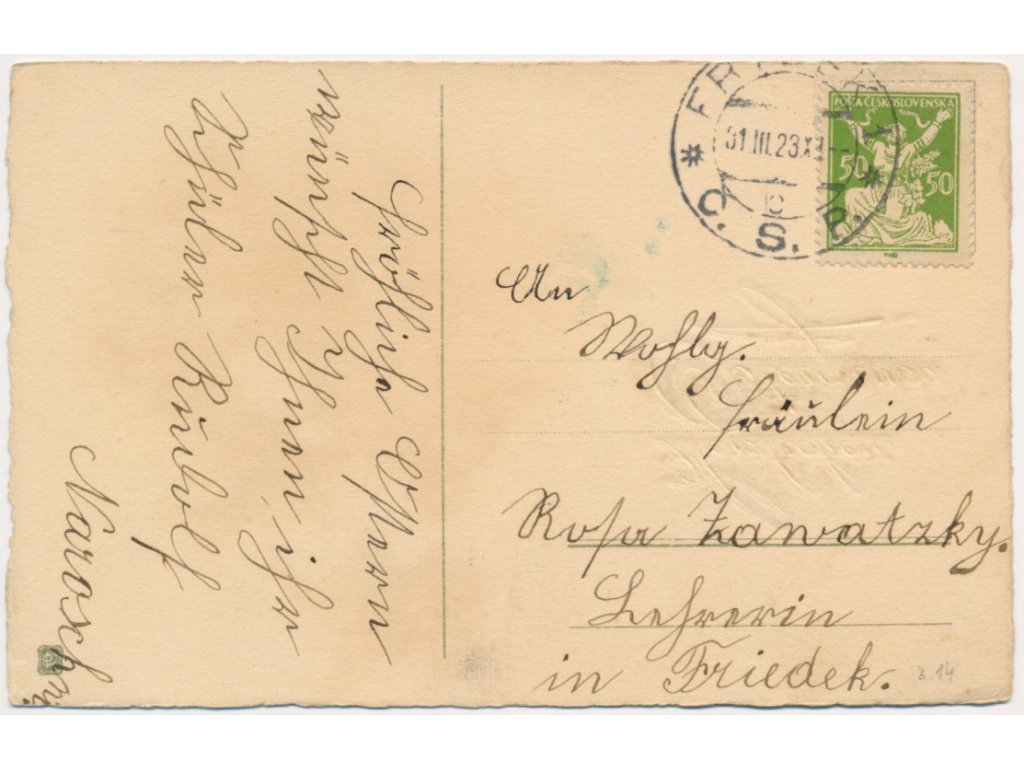 Fröhliche Ostern
wünscht Ihnen ihr
Schüler Rudolf
Narosch
FRÝDEK 1
31.III.23.X
c
Č. S. P.
POŠTA ČESKOSLOVENSKÁ
50 50
An
Wohlg.
Fräulein
Rosa Zawatzky.
Lehrerin
in Friedek.